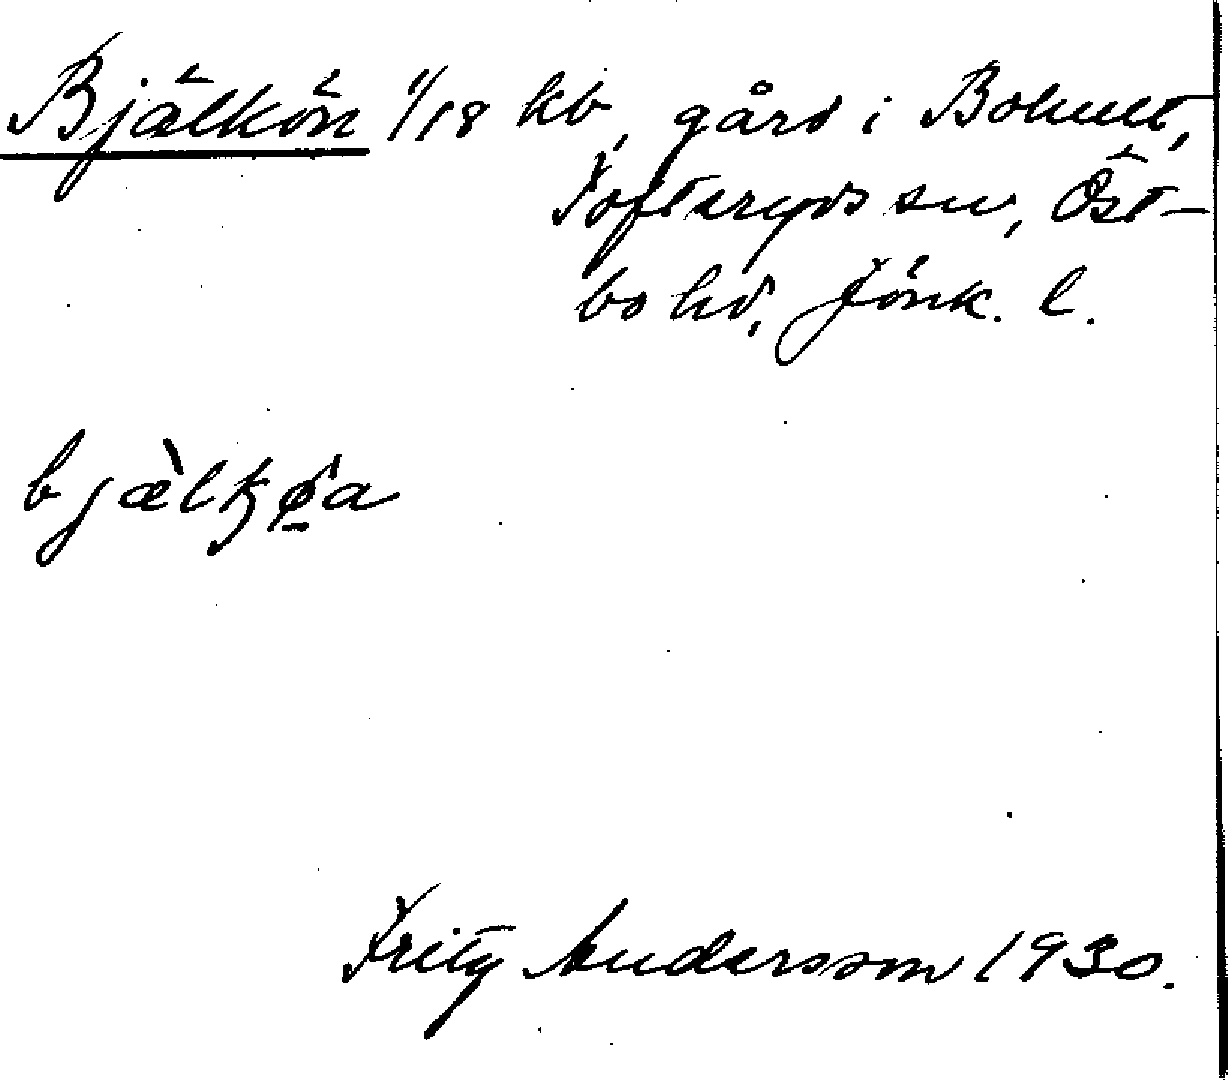 Bjälkön 1/18 kb, gård i Bohult,
Tofteryds sn, Öst-
bo hd, Jönk. l.
bjæ̀lkǿ̱a
Fritz Andersson 1930.